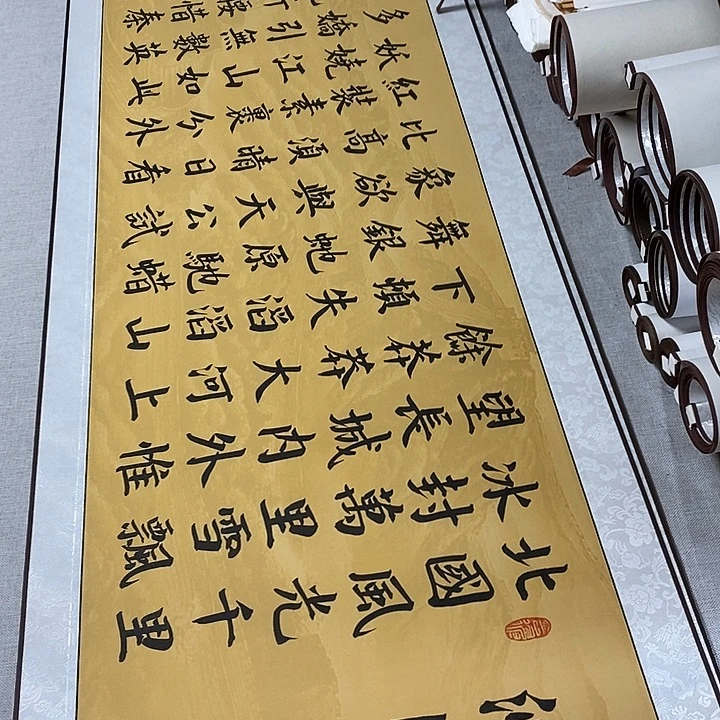 北國風光千里
冰封萬里雪飄
望長城内外惟
餘莽莽大河上
下頓失滔滔山
舞銀蛇原馳蜡
象欲與天公試
比高須晴日看
紅裝素裹分外
妖嬈江山如此
多嬌引無數英
腰惜秦